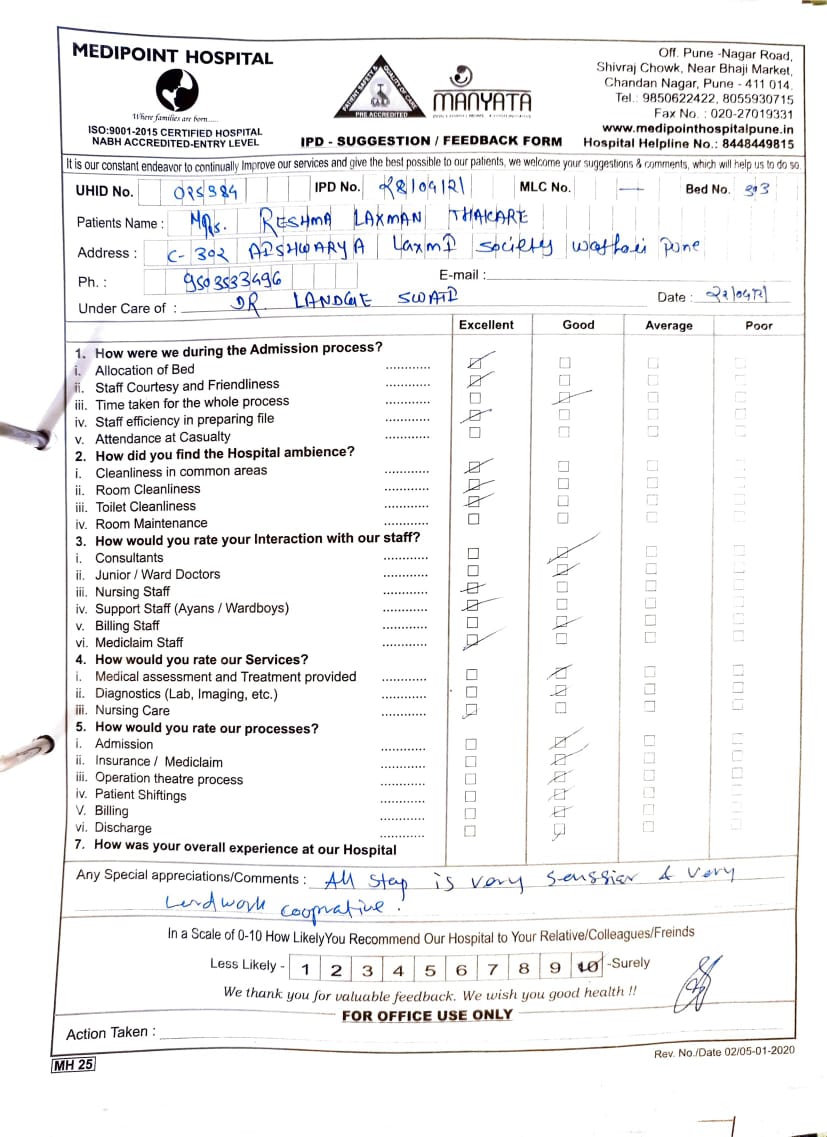 MEDIPOINT HOSPITAL
Where families are born.....
ISO:9001-2015 CERTIFIED HOSPITAL
NABH ACCREDITED-ENTRY LEVEL
PATIENT SAFETY & QUALITY OF CARE
PRE ACCREDITED
MANYATA
Off. Pune -Nagar Road,
Shivraj Chowk, Near Bhaji Market,
Chandan Nagar, Pune - 411 014.
Tel.: 9850622422, 8055930715
Fax No. : 020-27019331
www.medipointhospitalpune.in
IPD - SUGGESTION / FEEDBACK FORM Hospital Helpline No.: 8448449815
It is our constant endeavor to continually Improve our services and give the best possible to our patients, we welcome your suggestions & comments, which will help us to do so.
UHID No. 025384 IPD No. MLC No. — Bed No. 303
Patients Name : Mrs. RESHMA LAXMAN THAKARE
Address : C- 302 AISHWARYA LaxmI society Pune
Ph. : 9503533496 E-mail :
Under Care of : DR. LANDGE SWATI Date :
Excellent Good Average Poor
1. How were we during the Admission process?
i. Allocation of Bed ...........
ii. Staff Courtesy and Friendliness ...........
iii. Time taken for the whole process ...........
iv. Staff efficiency in preparing file ...........
v. Attendance at Casualty ...........
2. How did you find the Hospital ambience?
i. Cleanliness in common areas ...........
ii. Room Cleanliness ...........
iii. Toilet Cleanliness ...........
iv. Room Maintenance ...........
3. How would you rate your Interaction with our staff?
i. Consultants ...........
ii. Junior / Ward Doctors ...........
iii. Nursing Staff ...........
iv. Support Staff (Ayans / Wardboys) ...........
v. Billing Staff ...........
vi. Mediclaim Staff ...........
4. How would you rate our Services?
i. Medical assessment and Treatment provided ...........
ii. Diagnostics (Lab, Imaging, etc.) ...........
iii. Nursing Care ...........
5. How would you rate our processes?
i. Admission ...........
ii. Insurance / Mediclaim ...........
iii. Operation theatre process ...........
iv. Patient Shiftings ...........
V. Billing ...........
vi. Discharge ...........
7. How was your overall experience at our Hospital
Any Special appreciations/Comments : All is very & very
In a Scale of 0-10 How LikelyYou Recommend Our Hospital to Your Relative/Colleagues/Freinds
Less Likely - 1 2 3 4 5 6 7 8 9 10 -Surely
We thank you for valuable feedback. We wish you good health !!
FOR OFFICE USE ONLY
Action Taken :
MH 25
Rev. No./Date 02/05-01-2020